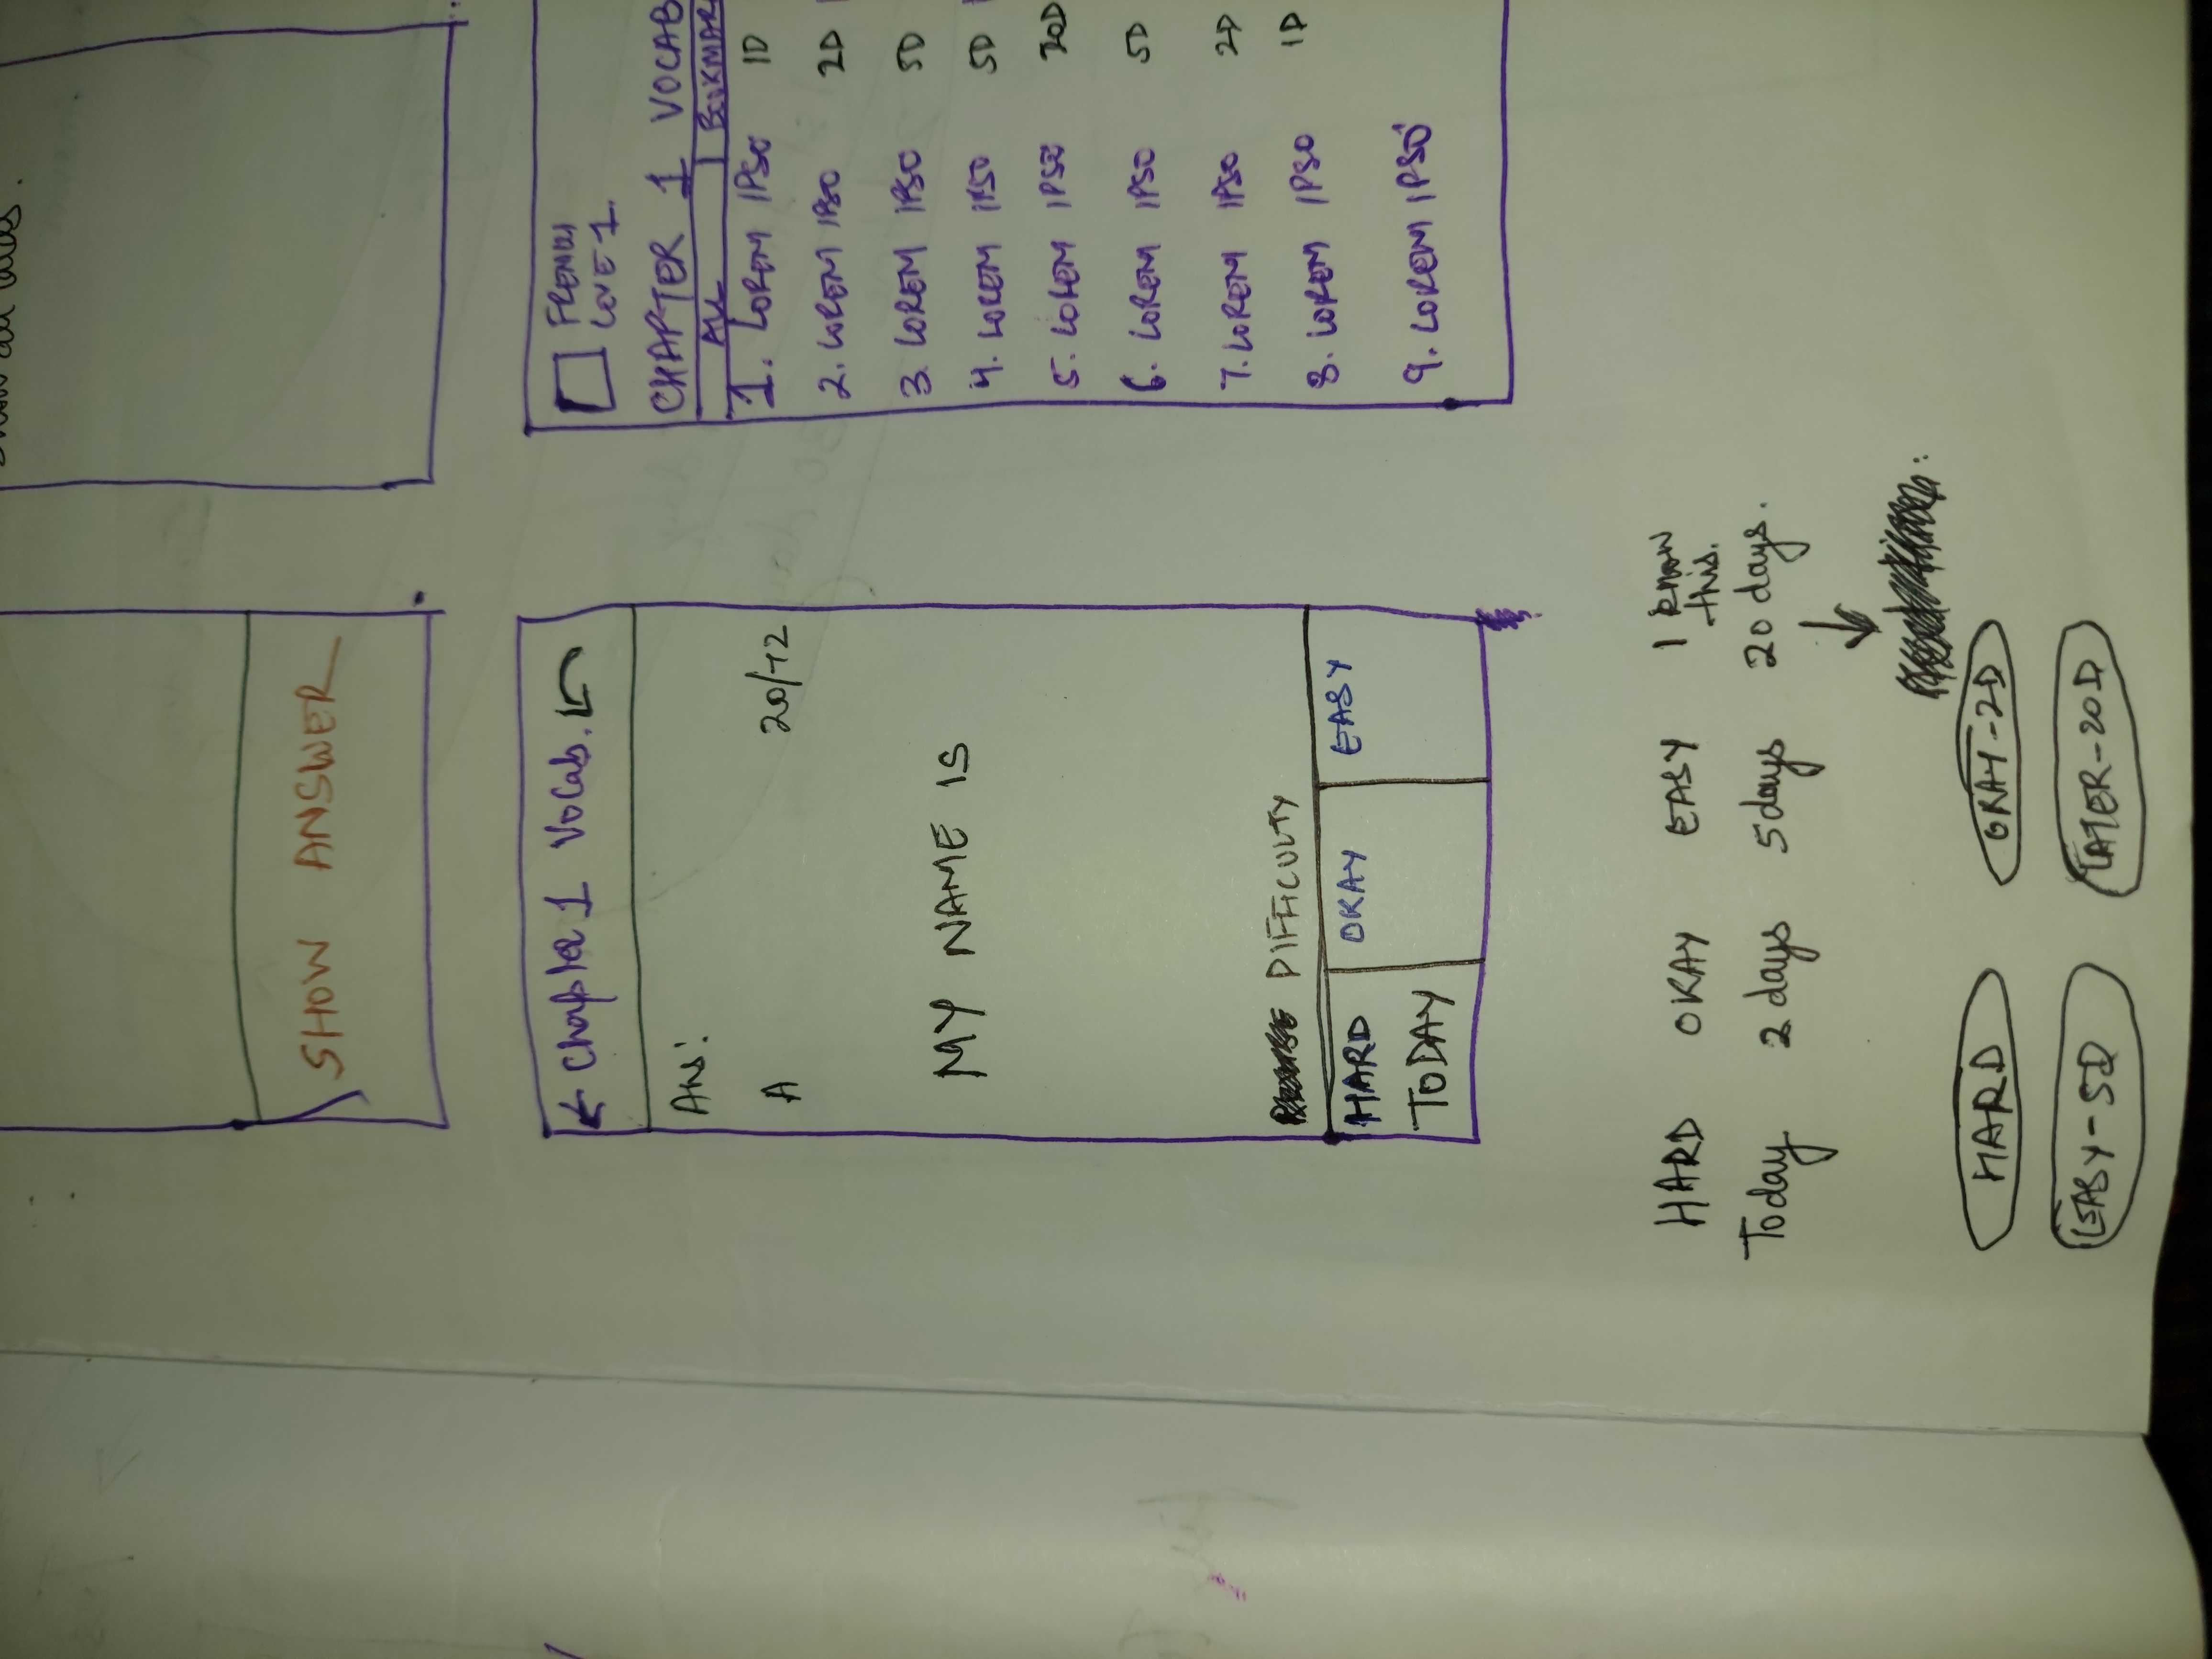 SHOW ANSWER
← Chapter 1 Vocab.
Ans:
A 20/72
MY NAME IS
DIFFICULTY
HARD OKAY EASY
TODAY
CHAPTER 1 VOCAB
ALL BOOKMAR
1. LOREM IPSO 1D
2. LOREM IPSO 2D
3. LOREM IPSO 5D
4. LOREM IPSO 5D
5. LOREM IPSO 20D
6. LOREM IPSO 5D
7. LOREM IPSO 2D
8. LOREM IPSO 1D
9. LOREM IPSO
HARD OKAY EASY I know
this.
Today 2 days 5 days 20 days.
HARD OKAY-2D
EASY-5D LATER-20D